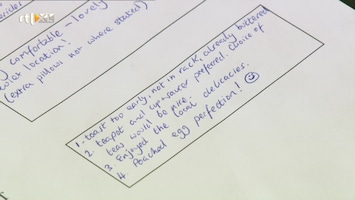 rtl
y comfortable - lovely
location!
(extra pillows not where stated)
1. toast too early, not in rack, already buttered
2. teapot and cup + saucer preferred. Choice of
teas would be nice.
3. Enjoyed the local delicacies.
4. Poached egg perfection! ☺